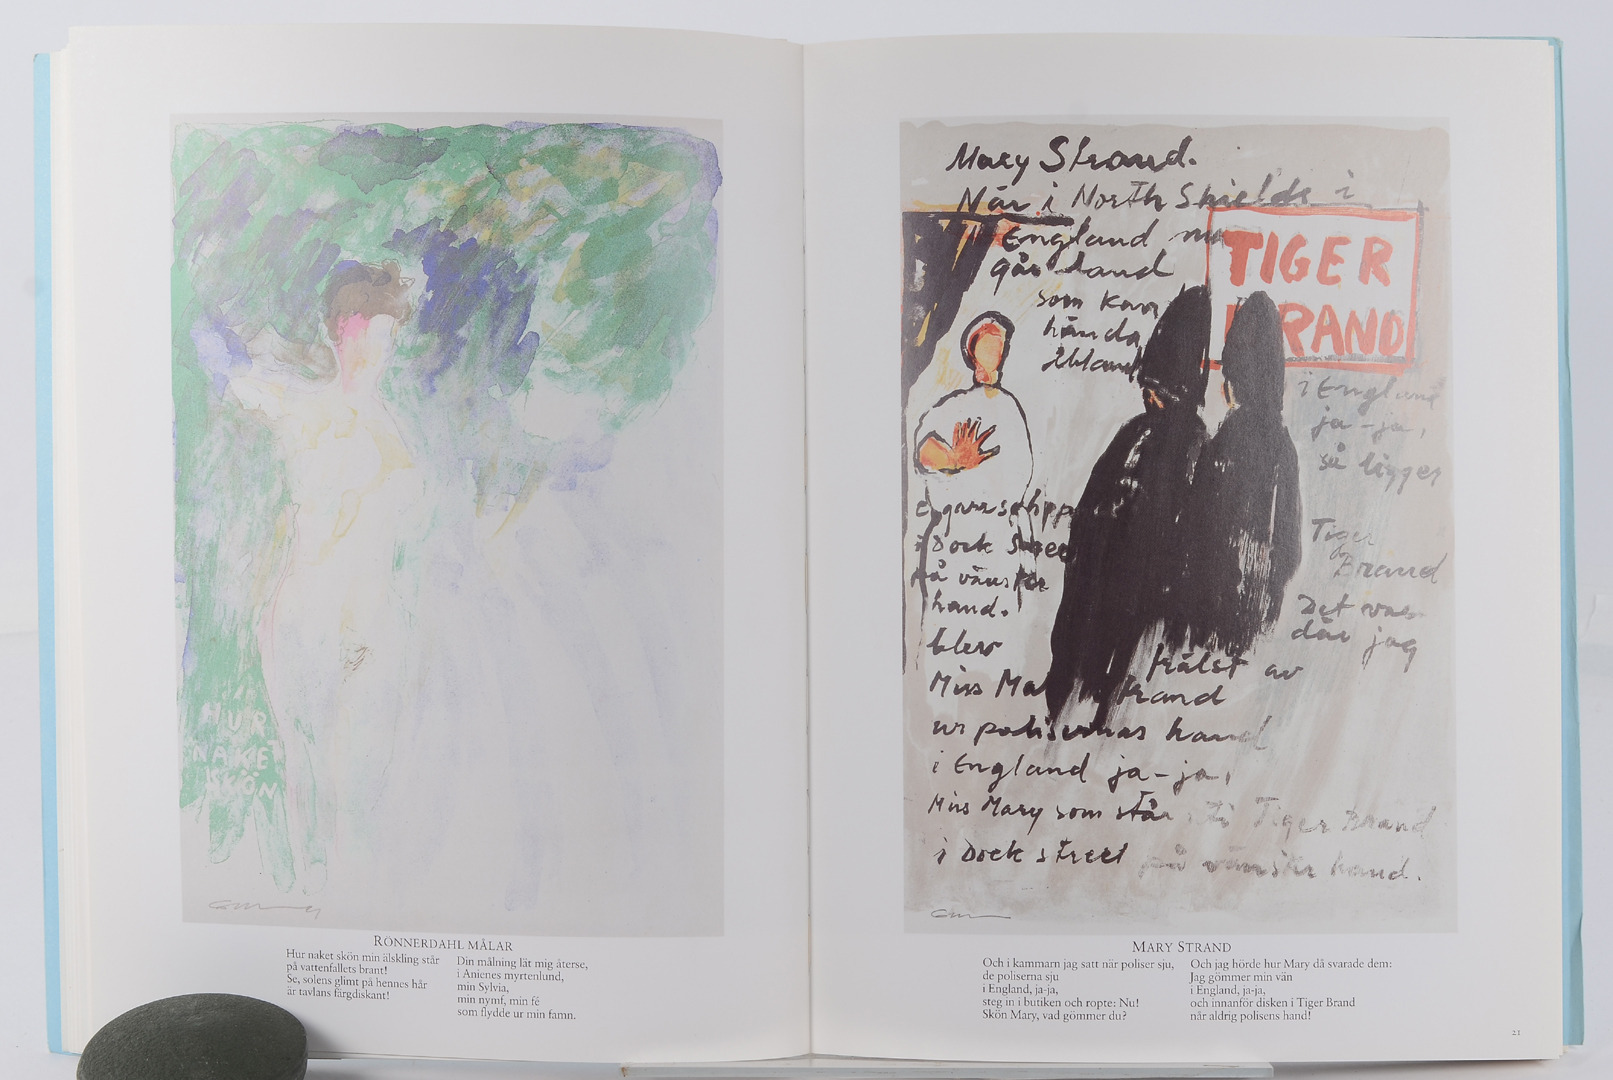 HUR
NAKET
SKÖN
RÖNNERDAHL MÅLAR
Hur naket skön min älskling står
på vattenfallets brant!
Se, solens glimt på hennes hår
är tavlans färgdiskant!
Din målning låt mig återse,
i Anienes myrtenlund,
min Sylvia,
min nymf, min fé
som flydde ur min famn.
Mary Strand.
När i North Shields i
England
går iland
som kan
hända
ibland
TIGER
BRAND
i England
ja-ja,
så ligger
Tiger
Brand
Det var
där jag
i Dock Street
på vänster
hand.
blev
frälst av
Miss Ma rand
ur polisernas hand
i England ja-ja,
Miss Mary som står i Tiger Brand
i Dock street på vänster hand.
MARY STRAND
Och i kammarn jag satt när poliser sju,
de poliserna sju
i England, ja-ja,
steg in i butiken och ropte: Nu!
Skön Mary, vad gömmer du?
Och jag hörde hur Mary då svarade dem:
Jag gömmer min vän
i England, ja-ja,
och innanför disken i Tiger Brand
når aldrig polisens hand!
21